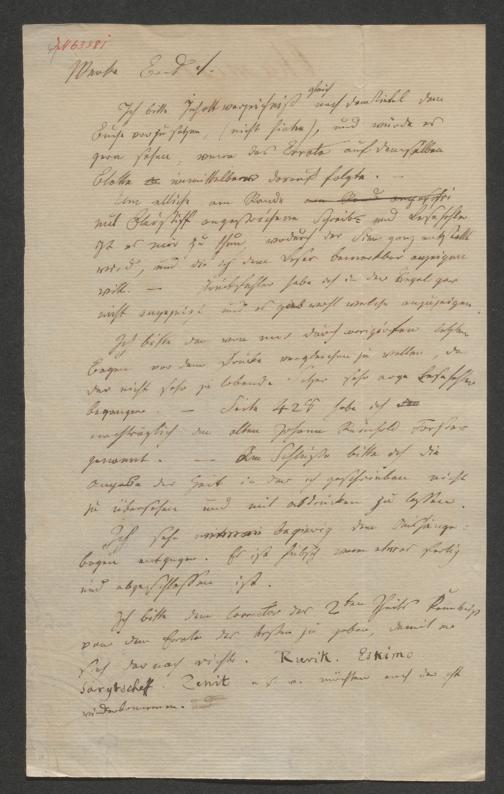 Werthe
Ich bitte Inhaltverzeichniß gleich nach dem Titel dem
Buche vorzusetzen, (nicht hinten), und würde es
gern sehen, wenn das Errata auf demselben
Blatte unmittelbar darauf folgte. —
Um etliche am Rande
mit Bleystift angestrichene Schreib- und Lesefehler
ist es mir zu thun, wodurch der Sinn ganz entstellt
wird, und die ich dem Leser bemerkbar anzeigen
will. — Druckfehler habe ich in der Regel gar
nicht angezeigt und es welche anzuzeigen.
Ich bitte den von mir durchcorrigirten letzten
Bogen vor dem Drucke vergleichen zu wollen, da
der nicht sehr zu lobende sehr arge Lesefehler
begangen. — Seite 425 habe ich
nachträglich den alten Johann Reinhold Forster
genannt. — Am Schlusse bitte ich die
Angabe der Zeit in der ich geschrieben nicht
zu übersehen und mit abdrucken zu lassen.
Ich sehe begierig dem Aushänge-
bogen entgegen. Es ist hübsch wenn etwas fertig
und abgeschlossen ist.
Ich bitte dem Corrector des 2ten Theils Kenntniß
von dem Errata des ersten zu geben, damit er
sich darnach richte. Rurik. Eskimo
Sarytscheff. Zenit u. s. w. möchten auch da oft
wiederkommen.